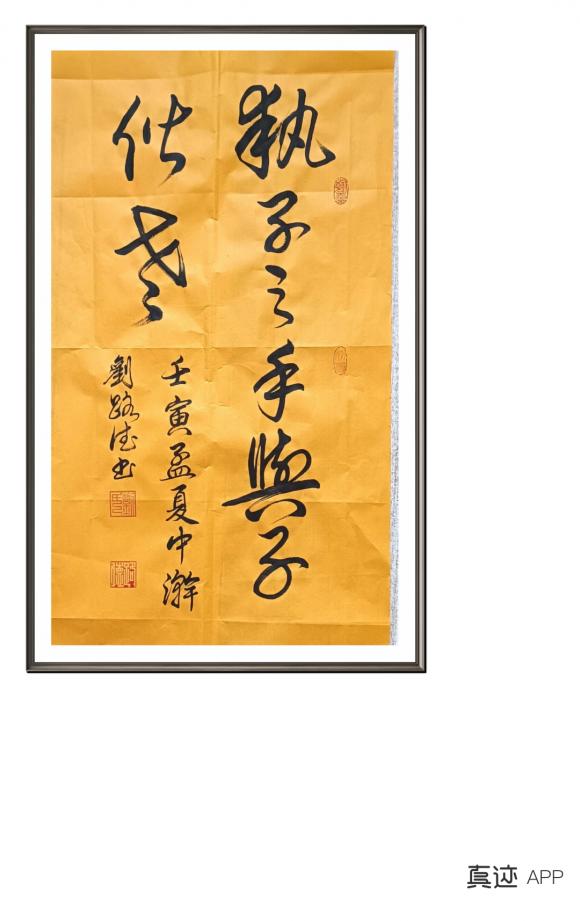 執子之手與子
偕老
壬寅孟夏中瀚
劉路德書
真迹 APP